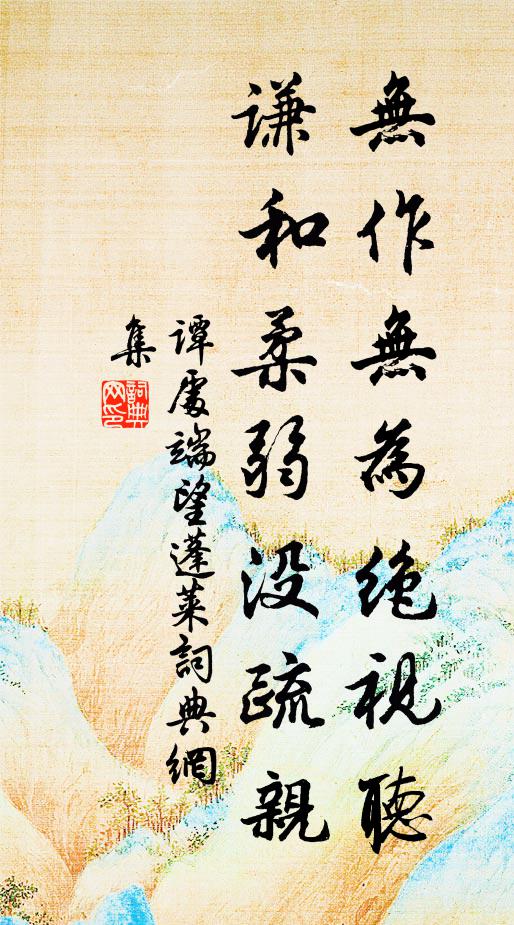 無作無為絶視聽
謙和柔弱没疏親
譚處端望蓬萊詞典網
集
詞典
網印